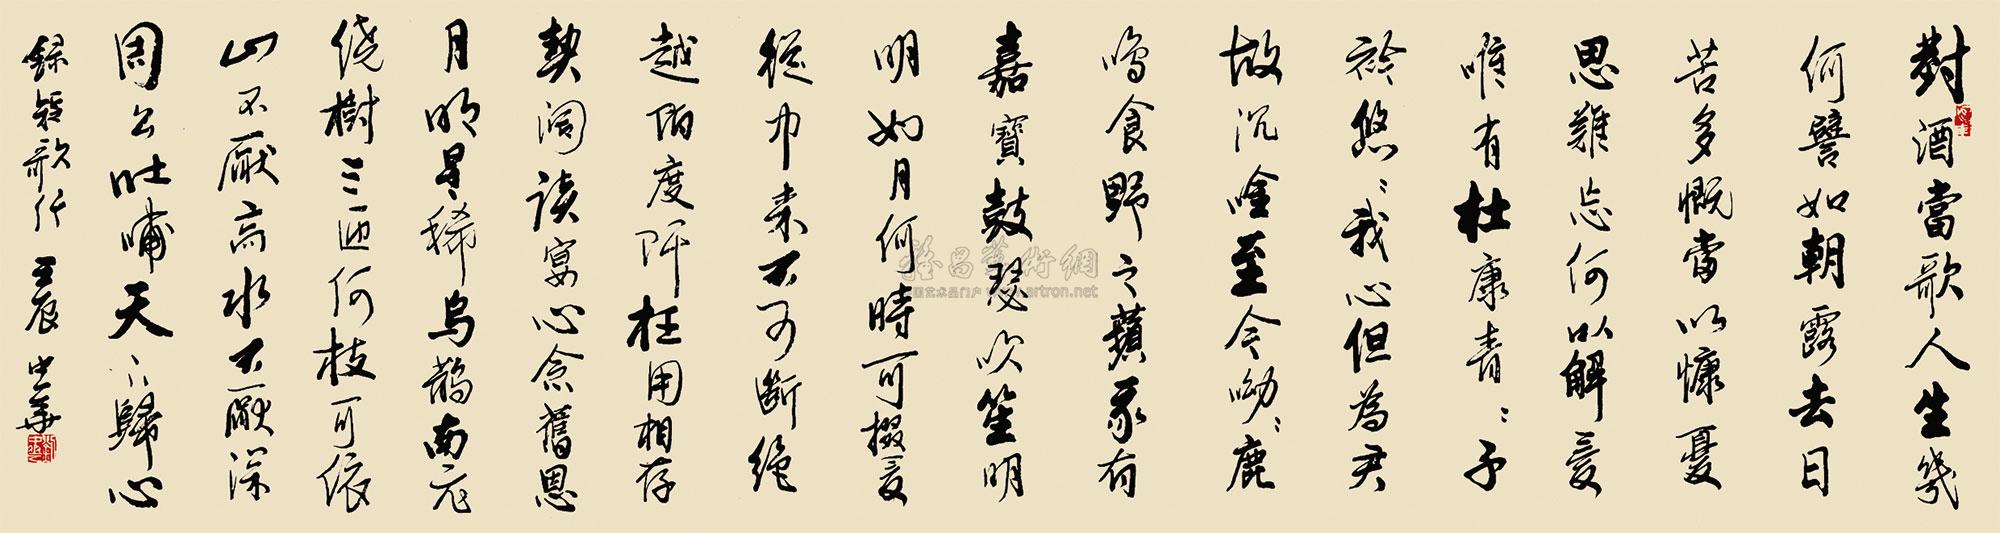 對酒當歌人生幾
何譬如朝露去日
苦多慨當以慷憂
思難忘何以解憂
唯有杜康青〻子
衿悠〻我心但為君
故沉唫至今呦〻鹿
鳴食野之蘋我有
嘉賓鼓瑟吹笙明
明如月何時可掇憂
從中來不可斷絕
越陌度阡枉用相存
契闊談宴心念舊恩
月明星稀烏鵲南飛
繞樹三匝何枝可依
山不厭高水不厭深
周公吐哺天下歸心
錄短歌行 壬辰 中華
雅昌藝術網
中国艺术品门户 www.artron.net